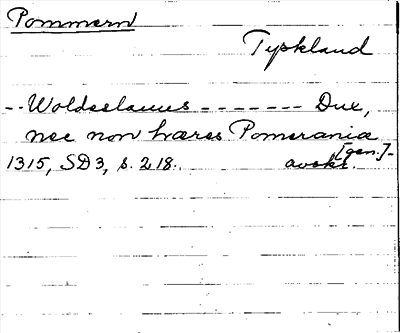 Pommern
Tyskland
-- Woldeslaus ------- Dux,
nec non hæres Pomerania
[gen.]-
1315, SD3, s. 218. avskr.